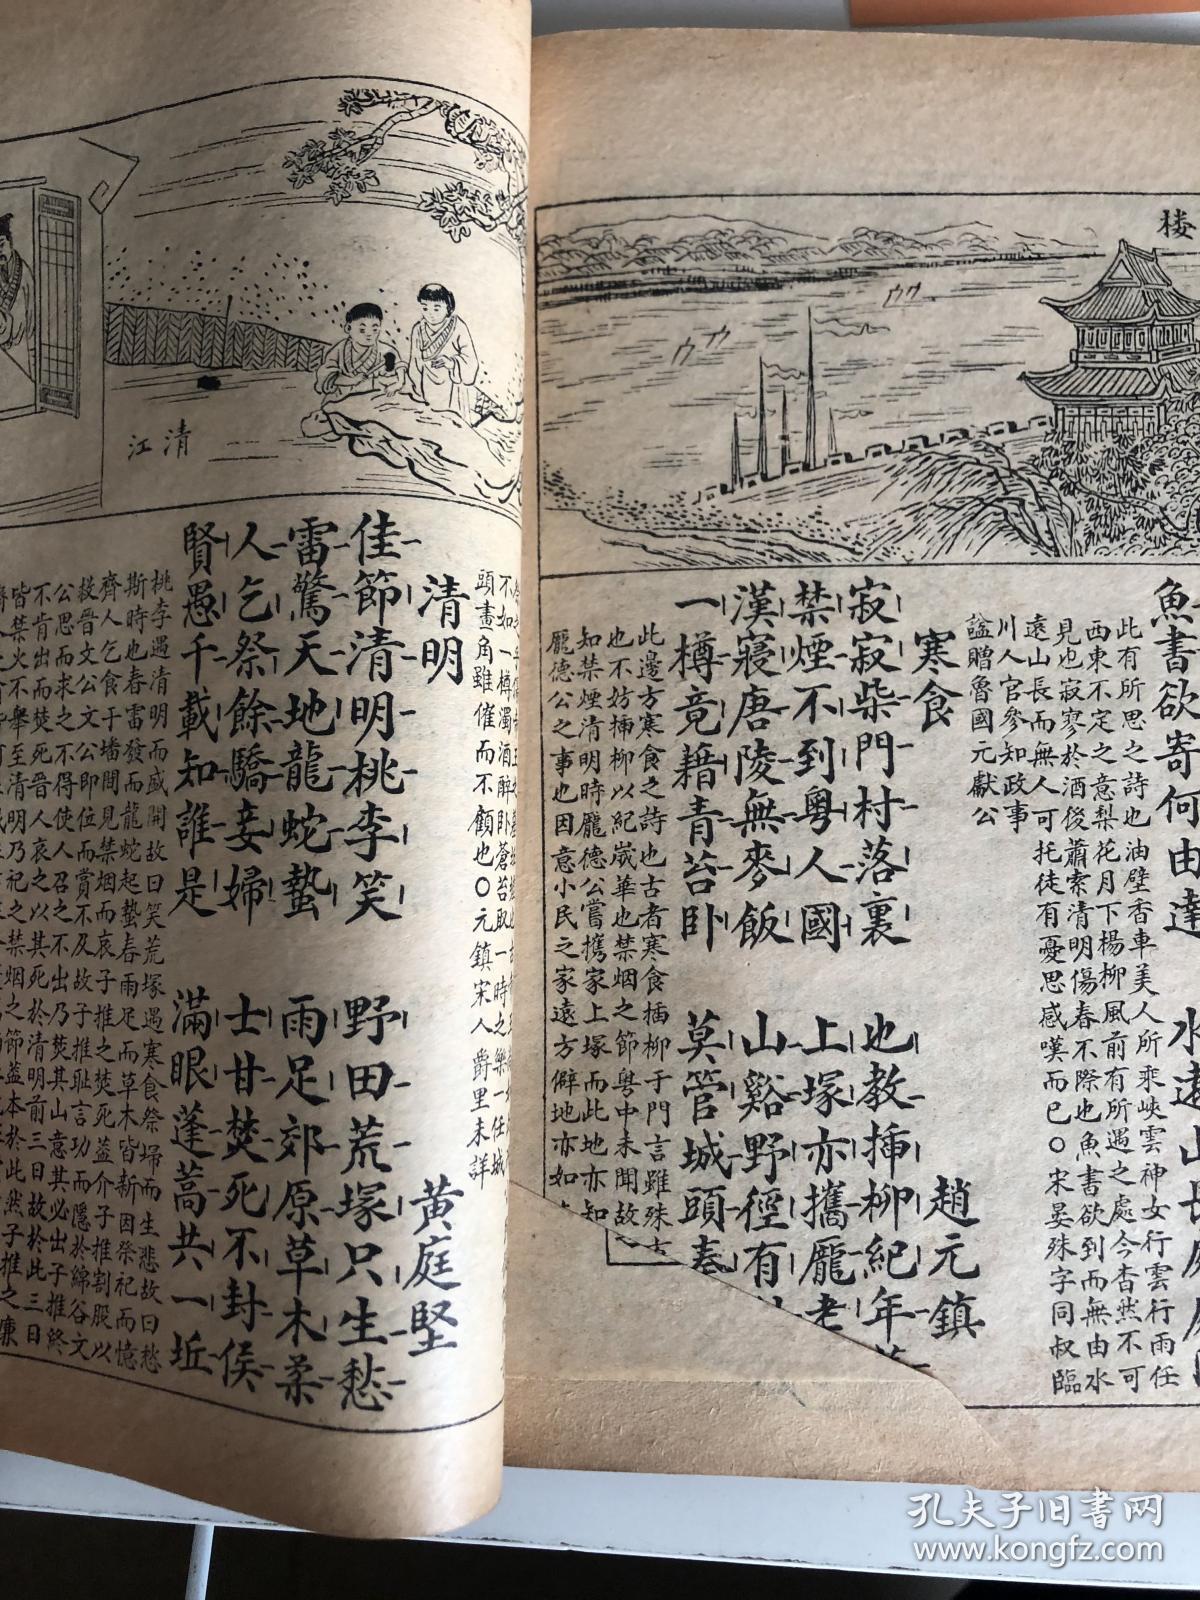 楼
魚書欲寄何由達
水遠山長處處
此有所思之詩也油壁香車美人所乘峽雲神女行雲行雨任
西東不定之意梨花月下楊柳風前有所遇之處今杳然不可
見也寂寥於酒後蕭索清明傷春不際也魚書欲到而無由水
遠山長而無人可托徒有憂思感嘆而已○宋晏殊字同叔臨
川人官參知政事
謚贈魯國元獻公
寒食
趙元鎮
寂寂柴門村落裏
也教插柳紀年
禁煙不到粵人國
上塚亦攜龐老
漢寢唐陵無麥飯
山谿野徑有
一樽竟藉青苔卧
莫管城頭奏
此邊方寒食之詩也古者寒食插柳于門言雖殊
也不妨插柳以紀歲華也禁烟之節粵中未聞故
知禁煙清明時龐德公嘗携家上塚而此地亦知
龐德公之事也因意小民之家遠方僻地亦如
不如一樽濁酒醉卧蒼苔取一時之樂一任城
頭畫角雖催而不顧也○元鎮宋人爵里未詳
清明
黄庭堅
佳節清明桃李笑
野田荒塚只生愁
雷驚天地龍蛇蟄
雨足郊原草木柔
人乞祭餘驕妾婦
士甘焚死不封侯
賢愚千載知誰是
滿眼蓬蒿共一坵
桃李遇清明而盛開故曰笑荒塚遇寒食祭埽而生悲故曰愁
斯時也春雷發而龍蛇起蟄春雨足而草木皆新因祭祀而憶
齊人乞食于墦間見禁烟而哀子推之焚死蓋介子推割股以
救晉文公文公即位而賞不及故子推耻言功而隱於綿谷文
公思而求之不得使人召之不出乃焚其山意其必出子推終
不肯出而焚死晉人哀之以其死於清明前三日故於此三日
皆禁火不舉至清明乃祀之禁烟之節蓋本於此然子推之廉
清江
孔夫子旧書网
www.kongfz.com